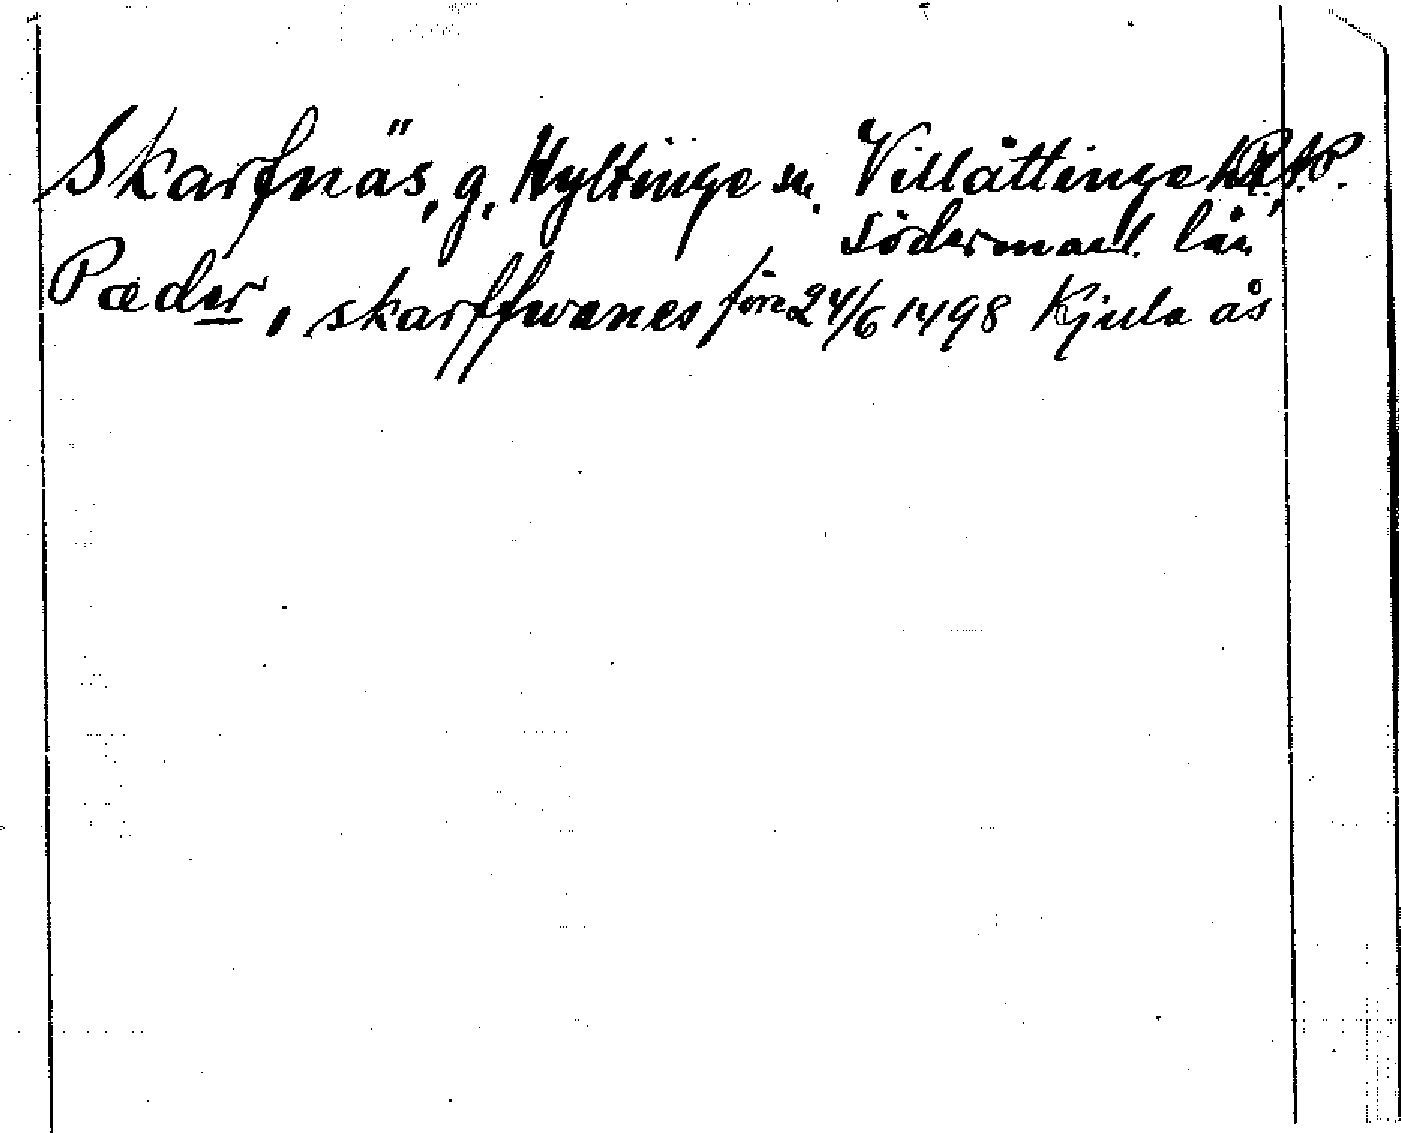 Skarfnäs, g, Hyltinge sn. Villåttinge hd,
Södermanl. län
Pæder, skarffwanes före 24/6 1498 Kjula ås